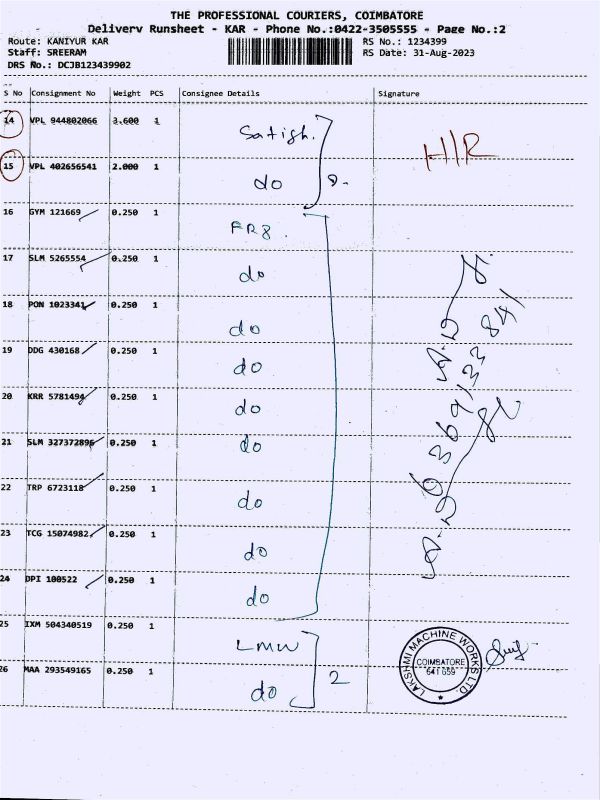 THE PROFESSIONAL COURIERS, COIMBATORE
Delivery Runsheet - KAR - Phone No.:0422-3505555 - Page No.:2
Route: KANIYUR KAR RS No.: 1234399
Staff: SREERAM RS Date: 31-Aug-2023
DRS No.: DCJB123439902
S No Consignment No Weight PCS Consignee Details Signature
14 VPL 944802066 3.600 1 Satish.
15 VPL 402656541 2.000 1 do
16 GYM 121669 0.250 1 FR8.
17 SLM 5265554 0.250 1 do
18 PON 1023341 0.250 1 do
19 DDG 430168 0.250 1 do
20 KRR 5781494 0.250 1 do
21 SLM 327372896 0.250 1 do
22 TRP 6723118 0.250 1 do
23 TCG 15074982 0.250 1 do
24 DPI 100522 0.250 1 do
25 IXM 504340519 0.250 1 LMW
26 MAA 293549165 0.250 1 do 2
LAKSHMI MACHINE WORKS LTD.
COIMBATORE
641 659